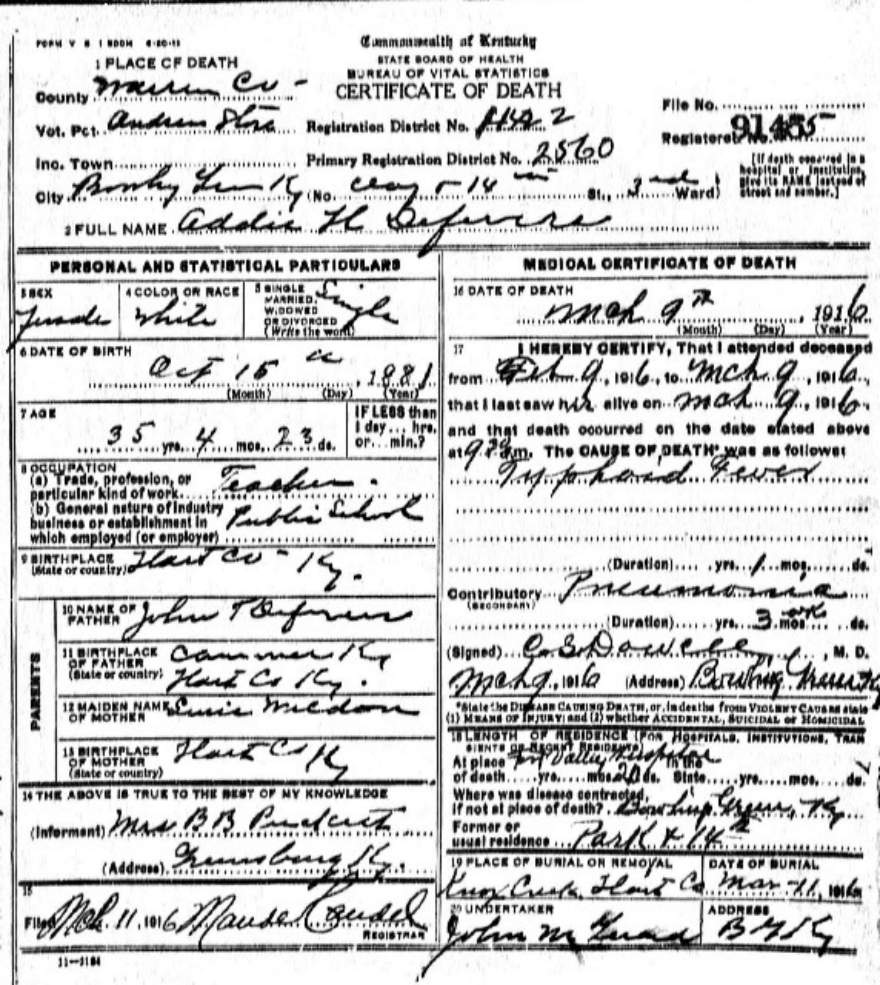 FORM V S 1
Commonwealth of Kentucky
STATE BOARD OF HEALTH
BUREAU OF VITAL STATISTICS
CERTIFICATE OF DEATH
1 PLACE OF DEATH
County Warren Co -
Vot. Pct. Andrew Store
Inc. Town
City Bowling Green Ky (No. Clay & 14 th St., 3rd Ward)
Registration District No. 1142
Primary Registration District No. 2560
File No.
Registered No. 91455
[If death occurred in a
hospital or institution,
give its NAME instead of
street and number.]
2 FULL NAME Addie H
PERSONAL AND STATISTICAL PARTICULARS
3 SEX
Female
4 COLOR OR RACE
White
5 SINGLE
MARRIED,
WIDOWED
OR DIVORCED
(Write the word)
Single
6 DATE OF BIRTH
Oct 15 , 1881
(Month) (Day) (Year)
7 AGE
35 yrs. 4 mos. 23 ds.
IF LESS than
1 day... hrs.
or... min.?
8 OCCUPATION
(a) Trade, profession, or
particular kind of work Teacher.
(b) General nature of industry
business or establishment in
which employed (or employer) Public School
9 BIRTHPLACE
(State or country) Hart Co - Ky.
PARENTS
10 NAME OF
FATHER John T
11 BIRTHPLACE
OF FATHER
(State or country) Cammer Ky
Hart Co Ky.
12 MAIDEN NAME
OF MOTHER
13 BIRTHPLACE
OF MOTHER
(State or country) Hart Co Ky
14 THE ABOVE IS TRUE TO THE BEST OF MY KNOWLEDGE
(Informant) Mrs B B Puckett
(Address) Greensburg Ky.
15
Filed Mch. 11, 1916 Maude
REGISTRAR
11-3184
MEDICAL CERTIFICATE OF DEATH
16 DATE OF DEATH
Mch 9th , 1916
(Month) (Day) (Year)
17 I HEREBY CERTIFY, That I attended deceased
from Feb 9, 1916, to Mch 9, 1916,
that I last saw her alive on Mch 9, 1916
and that death occurred on the date stated above
at 9 m. The CAUSE OF DEATH* was as follows:
Typhoid Fever
(Duration) yrs. 1 mos. ds.
Contributory Pneumonia
(SECONDARY)
(Duration) yrs. 3 mos. wk ds.
(Signed) C. S. Dowell, M. D.
Mch 9, 1916 (Address) Bowling Green Ky
*State the DISEASE CAUSING DEATH, or, in deaths from VIOLENT CAUSES state
(1) MEANS OF INJURY; and (2) whether ACCIDENTAL, SUICIDAL or HOMICIDAL
18 LENGTH OF RESIDENCE (FOR HOSPITALS, INSTITUTIONS, TRAN
SIENTS OR RECENT RESIDENTS)
At place In the
of death yrs. mos. 20 ds. State yrs. mos. ds.
Where was disease contracted,
If not at place of death? Bowling Green, Ky
Former or
usual residence Park & 14th
19 PLACE OF BURIAL OR REMOVAL
Knox Creek, Hart Co
DATE OF BURIAL
Mar - 11, 1916
20 UNDERTAKER
John M
ADDRESS
B G Ky